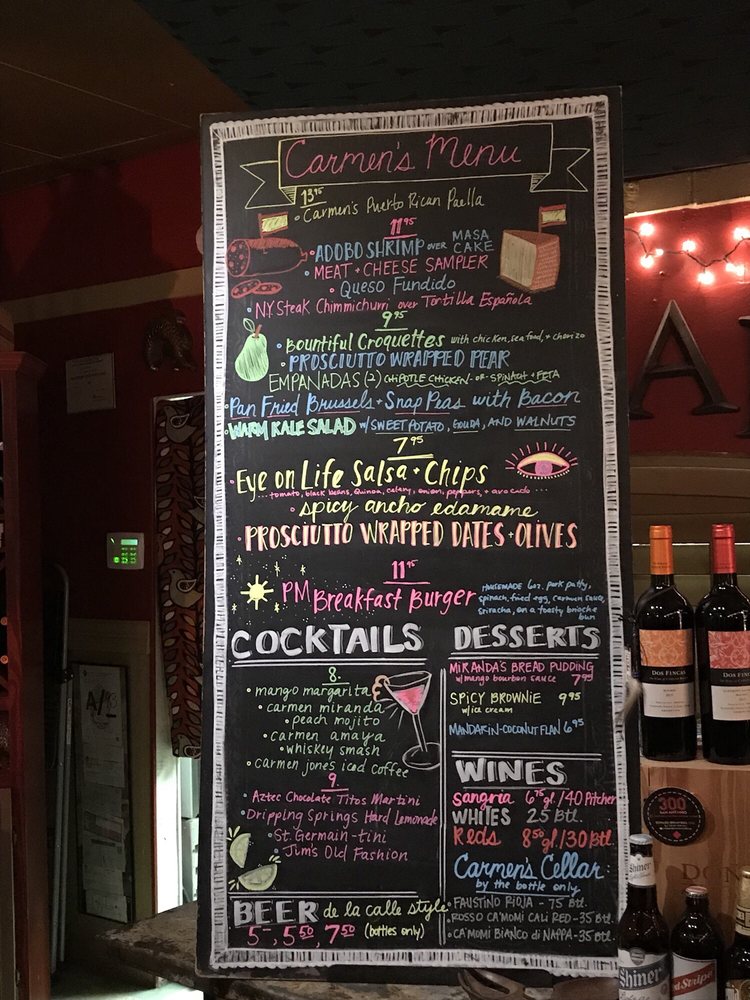 Carmen's Menu
13 95
• Carmen's Puerto Rican Paella
11 95
• ADOBO SHRIMP OVER MASA CAKE
• MEAT + CHEESE SAMPLER
• Queso Fundido
• NY Steak Chimmichurri over Tortilla Española
9 95
• Bountiful Croquettes with chicken, seafood, + chorizo
• PROSCIUTTO WRAPPED PEAR
EMPANADAS (2) CHIPOTLE CHICKEN -OR- SPINACH + FETA
• Pan Fried Brussels + Snap Peas with Bacon
• WARM KALE SALAD w/ SWEET POTATO, GOUDA, AND WALNUTS
7 95
• Eye on Life Salsa + Chips
...tomato, black beans, quinoa, celery, onion, peppers, + avocado...
• spicy ancho edamame
• PROSCIUTTO WRAPPED DATES + OLIVES
11 95
• PM Breakfast Burger
HOUSEMADE 6oz. pork patty,
spinach, fried egg, carmen sauce,
sriracha, on a toasty brioche
bun
COCKTAILS
8.
• mango margarita
• carmen miranda
• peach mojito
• carmen amaya
• whiskey smash
• carmen jones iced coffee
9.
• Aztec Chocolate Titos Martini
• Dripping Springs Hard Lemonade
• St. Germain-tini
• Jim's Old Fashion
BEER de la calle style
5-, 5 50, 7 50 (bottles only)
DESSERTS
MIRANDA'S BREAD PUDDING
w/ mango bourbon sauce 7 95
SPICY BROWNIE 9 95
w/ ice cream
MANDARIN-COCONUT FLAN 6 95
WINES
Sangria 6 75 gl. / 40 Pitcher
WHITES 25 Btl.
Reds 8 50 gl / 30 Btl.
Carmen's Cellar
by the bottle only
• FAUSTINO RIOJA - 75 Btl.
• ROSSO CA'MOMI CALI RED - 35 Btl.
• CA'MOMI BIANCO di NAPPA - 35 Btl.
DOS FINCAS
DOS FINCAS
300
Shiner
Red Stripe